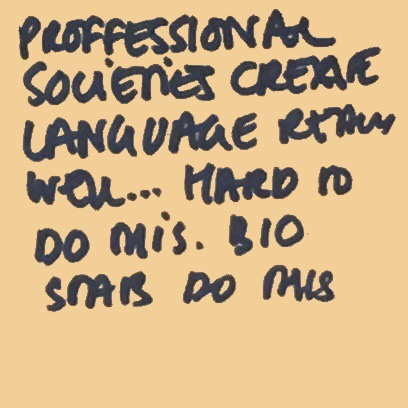 PROFFESSIONAL
SOCIETIES CREATE
LANGUAGE REALLY
WELL... HARD TO
DO THIS. BIO
STATS DO THIS